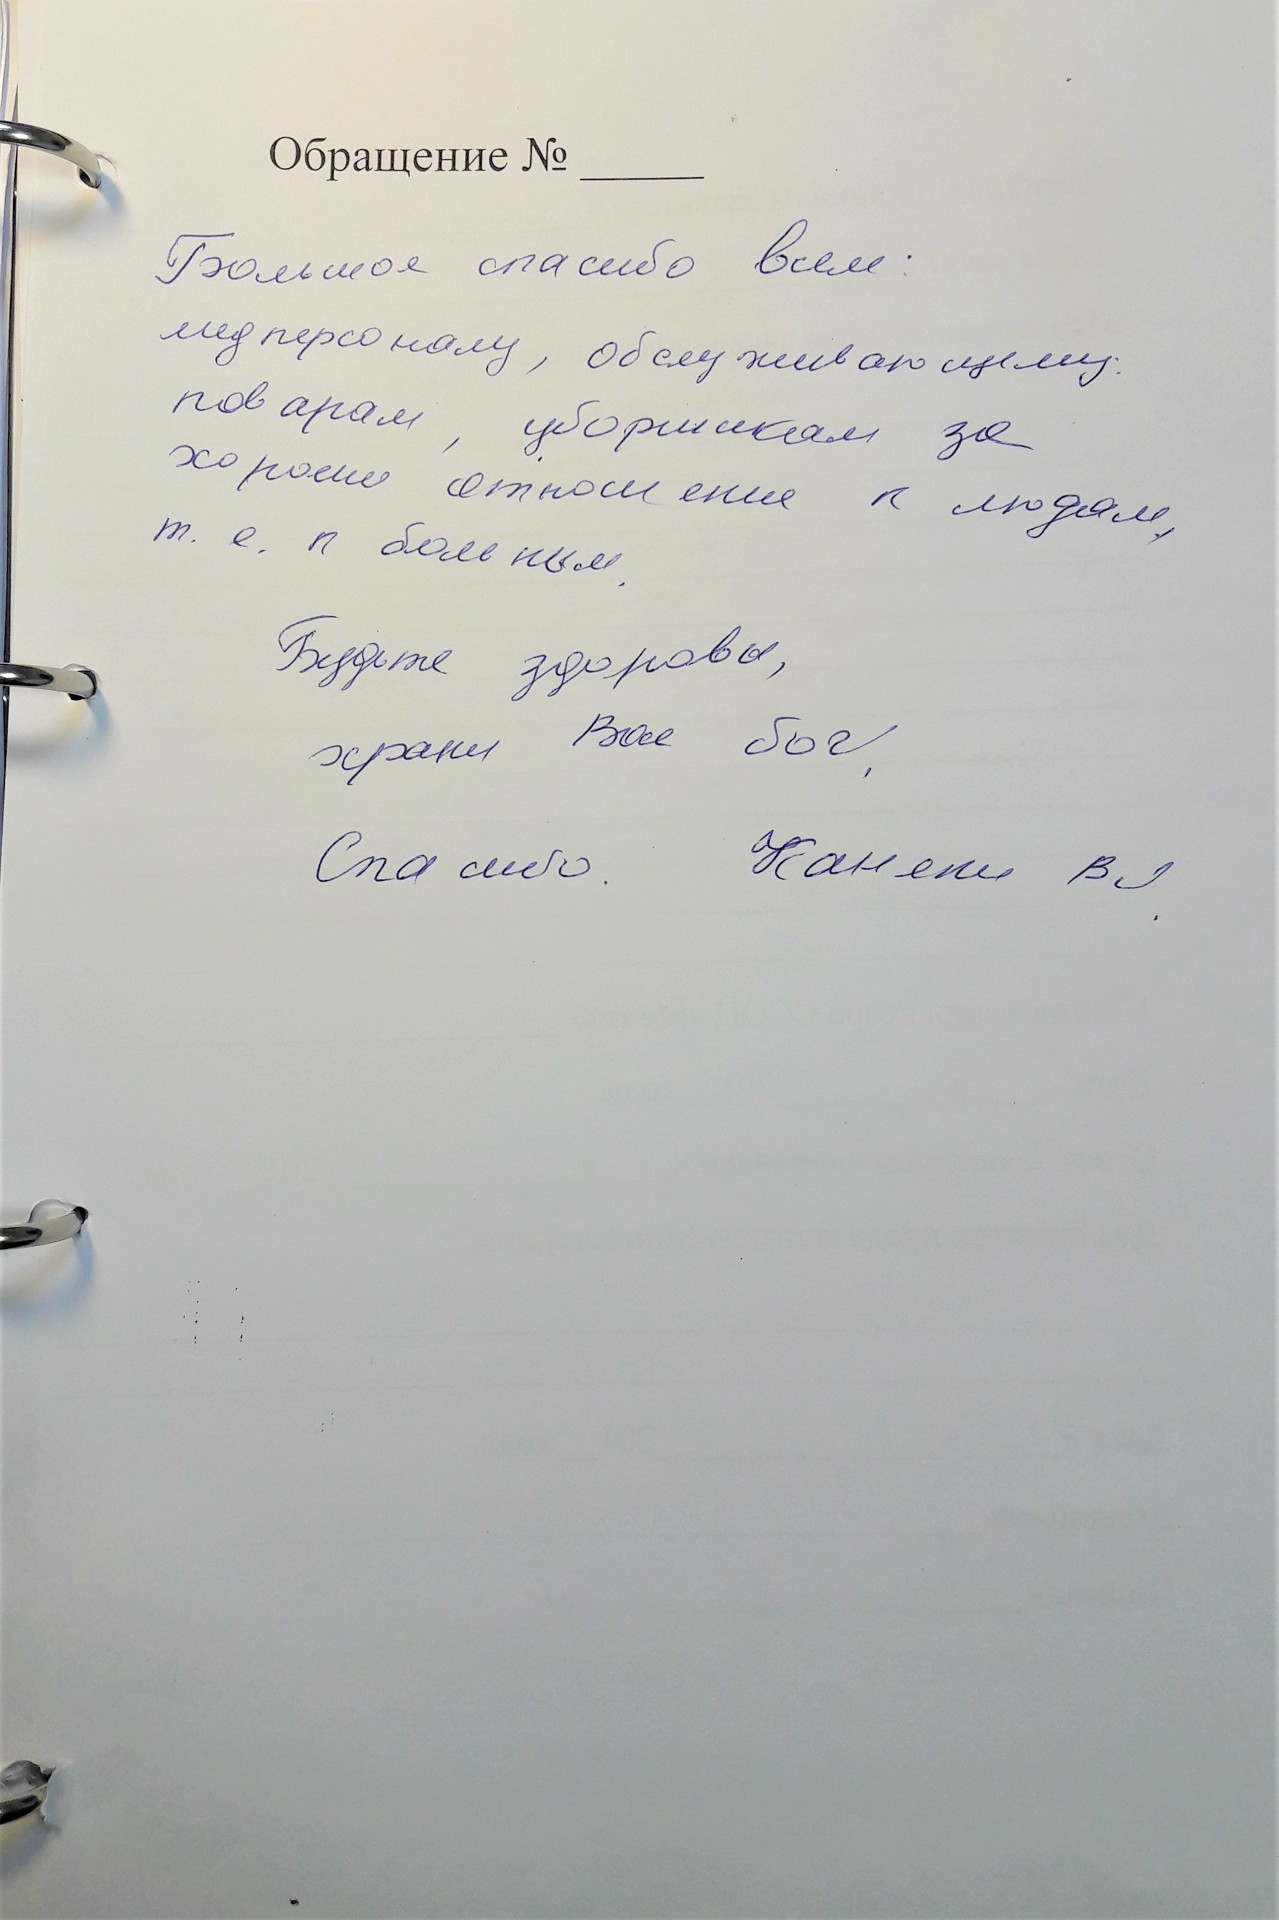 Обращение № _____
Большое спасибо всем:
медперсоналу, обслуживающему:
поварам, уборщикам за
хорошее отношение к людям,
т. е. к больным.
Будьте здоровы,
храни Вас бог,
Спасибо.